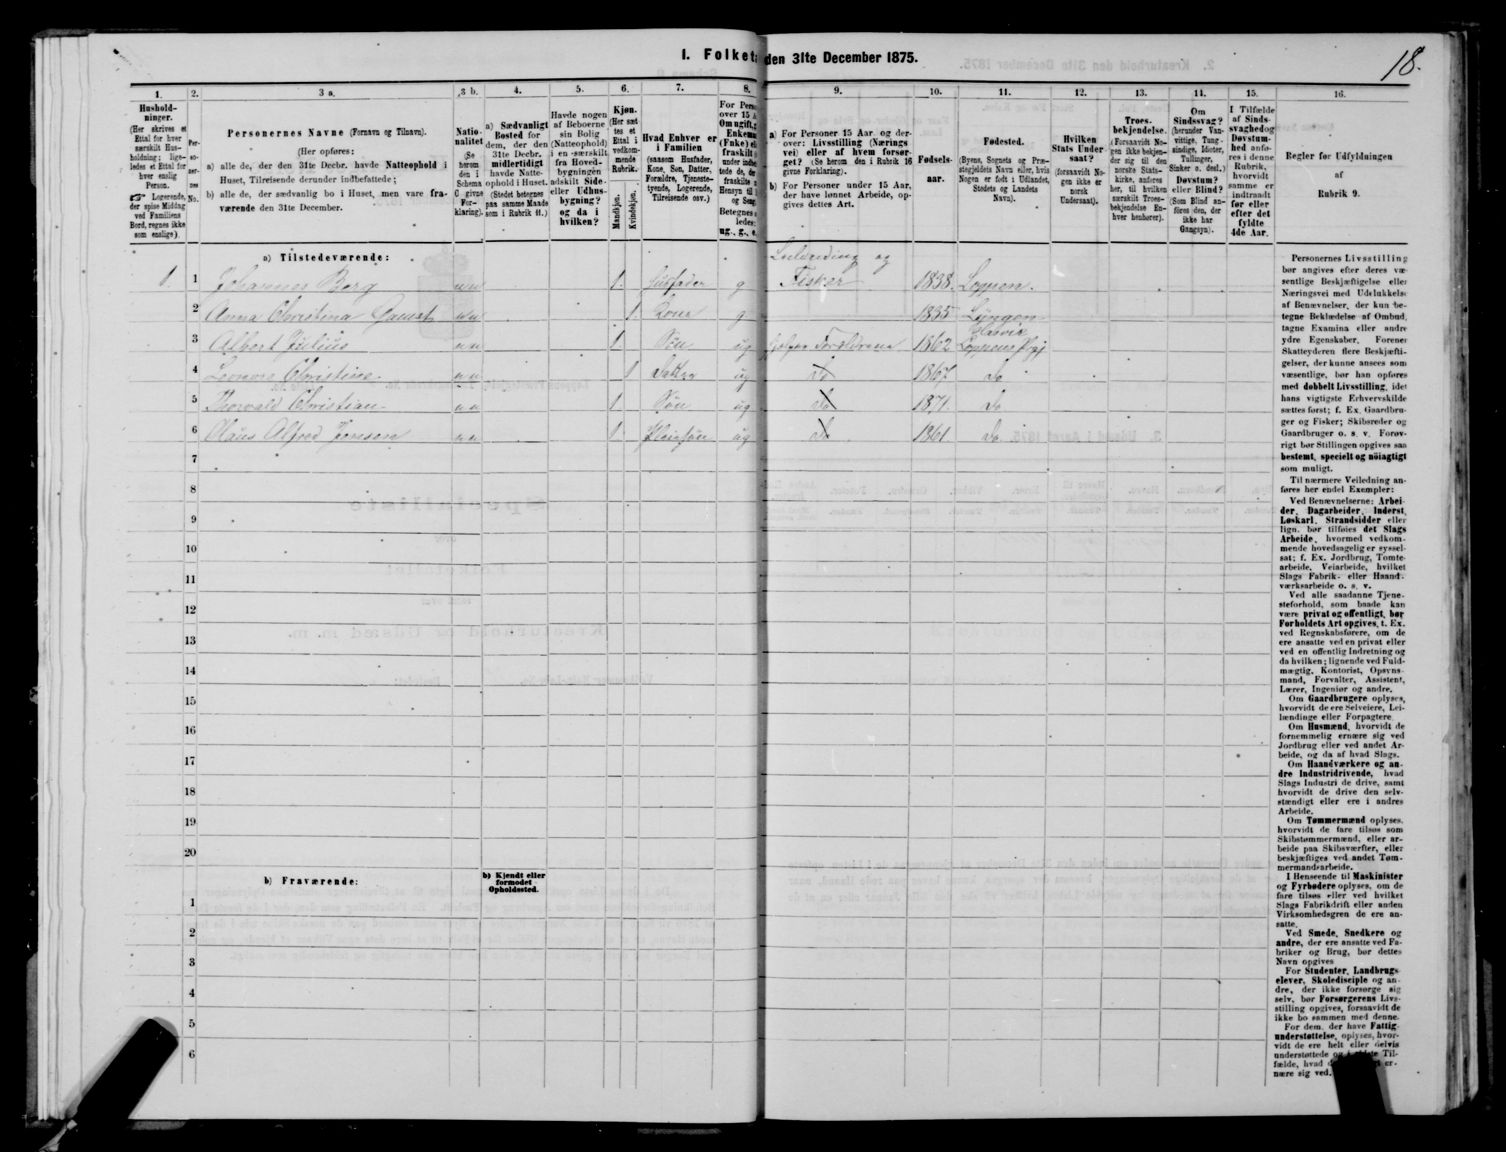 I. Folket den 31te December 1875.
18.
1.
Hushold-
ninger.
(Her skrives et
Ettal for hver
særskilt Hus-
holdning; lige-
ledes et Ettal for
hver enslig
Person.
☞ Logerende,
der spise Middag
ved Familiens
Bord, regnes ikke
som enslige).
2.
Per-
so-
ner-
nes
No.
3 a.
Personernes Navne (Fornavn og Tilnavn).
(Her opføres:
a) alle de, der den 31te Decbr. havde Natteophold i
Huset, Tilreisende derunder indbefattede;
b) alle de, der sædvanlig bo i Huset, men vare fra-
værende den 31te December.
3 b.
Natio-
nalitet
(Se
herom
den i
Schema
C givne
For-
klaring).
4.
a) Sædvanligt
Bosted for
dem, der den
31te Decbr.
midlertidigt
havde Natte-
ophold i Huset.
(Stedet betegnes
paa samme Maade
som i Rubrik 11.)
5.
Havde nogen
af Beboerne
sin Bolig
(Natteophold)
i en særskilt
fra Hoved-
bygningen
adskilt Side-
eller Udhus-
bygning?
og da i
hvilken?
6.
Kjøn.
(Her sæt-
tes et
Ettal i
vedkom-
mende
Rubrik.
Mandkjøn.
Kvindekjøn.
7.
Hvad Enhver er
i Familien
(saasom Husfader,
Kone, Søn, Datter,
Forældre, Tjeneste-
tyende, Logerende,
Tilreisende osv.)
8.
For Pers
over 15 A
Om ugift,
Enkem
(Fuke) el
fraskilt
9.
a) For Personer 15 Aar og der-
over: Livsstilling (Nærings
vei) eller af hvem forsør-
get? (Se herom den i Rubrik 16
givne Forklaring).
b) For Personer under 15 Aar,
der have lønnet Arbeide, op-
gives dettes Art.
10.
Fødsels-
aar.
11.
Fødested.
(Byens, Sognets og Præ-
stegjeldets Navn eller, hvis
Nogen er født i Udlandet,
Stedets og Landets
Navn).
12.
Hvilken
Stats Under
saat?
(forsaavidt No-
gen ikke er
norsk
Undersaat).
13.
Troes-
bekjendelse.
(Forsaavidt No-
gen ikke bekjen-
der sig til den
norske Stats-
kirke, anføres
her, til hvilken
særskilt Troes-
bekjendelse En-
hver henhører).
14.
Om
Sindssvag?
(herunder Van-
vittige, Tung-
sindige, Idioter,
Tullinger,
Sinker o. desl.)
Døvstum?
eller Blind?
(Som Blind an-
føres den, der
ikke har
Gangsyn).
15.
I Tilfælde
af Sinds-
svaghed og
Døvstum-
hed anfø-
res i denne
Rubrik,
hvorvidt
samme er
indtraadt
før eller
efter det
fyldte
4de Aar.
16.
Regler før Udfyldningen
af
Rubrik 9.
a) Tilstedeværende:
og
1. 1 Johannes Berg n 1. Husfader g Fisker 1838. Loppen.
2 Anna Christina n 1. Kone g 1835 Lyngen
Hasvik
3 Albert Julius n 1. Søn ug 1862 Loppens Prgj
4 Leonore Christine n 1 Datter ug do 1867. do
5 Thorvald Christian n 1. Søn ug do 1871. do
6 Olaus Alfred Jensen n 1. Pleiesøn ug do 1861 do
7
8
9
10
11
12
13
14
15
16
17
18
19
20
b) Fraværende:
b) Kjendt eller
formodet
Opholdssted.
1
2
3
4
5
6
Personernes Livsstilling
bør angives efter deres væ-
sentlige Beskjæftigelse eller
Næringsvei med Udelukkelse
af Benævnelser, der kun be-
tegne Beklædelse af Ombud,
tagne Examina eller andre
ydre Egenskaber. Forener
Skatteyderen flere Beskjæfti-
gelser, der kunne ansees som
væsentlige, bør han opføres
med dobbelt Livsstilling, idet
hans vigtigste Erhvervskilde
sættes først; f. Ex. Gaardbru-
ger og Fisker; Skibsreder og
Gaardbruger o. s. v. Forøv-
rigt bør Stillingen opgives saa
bestemt, specielt og nöiagtigt
som muligt.
Til nærmere Veiledning an-
føres her endel Exempler:
Ved Benævnelserne: Arbei-
der, Dagarbeider, Inderst,
Løskarl, Strandsidder eller
lign. bør tilføies det Slags
Arbeide, hvormed vedkom-
mende hovedsagelig er syssel-
sat; f. Ex. Jordbrug, Tomte-
arbeide, Veiarbeide, hvilket
Slags Fabrik- eller Haand-
værksarbeide o. s. v.
Ved alle saadanne Tjene-
steforhold, som baade kan
være privat og offentligt, bør
Forholdets Art opgives, t. Ex.
ved Regnskabsførere, om de
ere ansatte ved en privat eller
ved en offentlig Indretning og
da hvilken; lignende ved Fuld-
mægtig, Kontorist, Opsyns-
mand, Forvalter, Assistent,
Lærer, Ingeniør og andre.
Om Gaardbrugere oplyses,
hvorvidt de ere Selveiere, Lei-
lændinge eller Forpagtere.
Om Husmænd, hvorvidt de
fornemmelig ernære sig ved
Jordbrug eller ved andet Ar-
beide, og da af hvad Slags.
Om Haandværkere og an-
dre Industridrivende, hvad
Slags Industri de drive, samt
hvorvidt de drive den selv-
stændigt eller ere i andres
Arbeide.
Om Tømmermænd oplyses,
hvorvidt de fare tilsøs som
Skibstømmermænd, eller ar-
beide paa Skibsværfter, eller
beskjæftiges ved andet Tøm-
mermandsarbeide.
I Henseende til Maskinister
og Fyrbødere oplyses, om de
fare tilsøs eller ved hvilket
Slags Fabrikdrift eller anden
Virksomhedsgren de ere an-
satte.
Ved Smede, Snedkere og
andre, der ere ansatte ved Fa-
briker og Brug, bør dettes
Navn opgives
For Studenter, Landbrugs-
elever, Skoledisciple og an-
dre, der ikke forsørge sig
selv, bør Forsørgerens Livs-
stilling opgives, forsaavidt de
ikke bo sammen med denne.
For dem, der have Fattig-
understøttelse, oplyses, hvor-
vidt de ere helt eller delvis
understøttede og i sidste Til-
fælde, hvad de er-
nære sig ved.